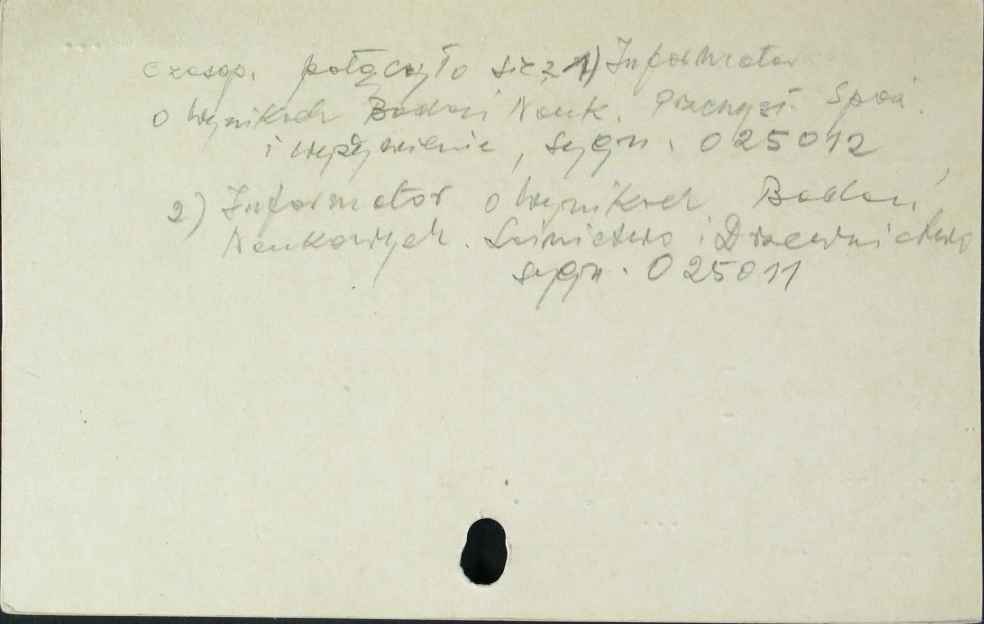 czasop. połączyło się z 1) Informator
o Wynikach Badań Nauk. Przemysł Spoż.
i wyżywienie, sygn. 025012
2) Informator o Wynikach Badań
Naukowych. Leśnictwo i Drzewnictwo
sygn. 025011